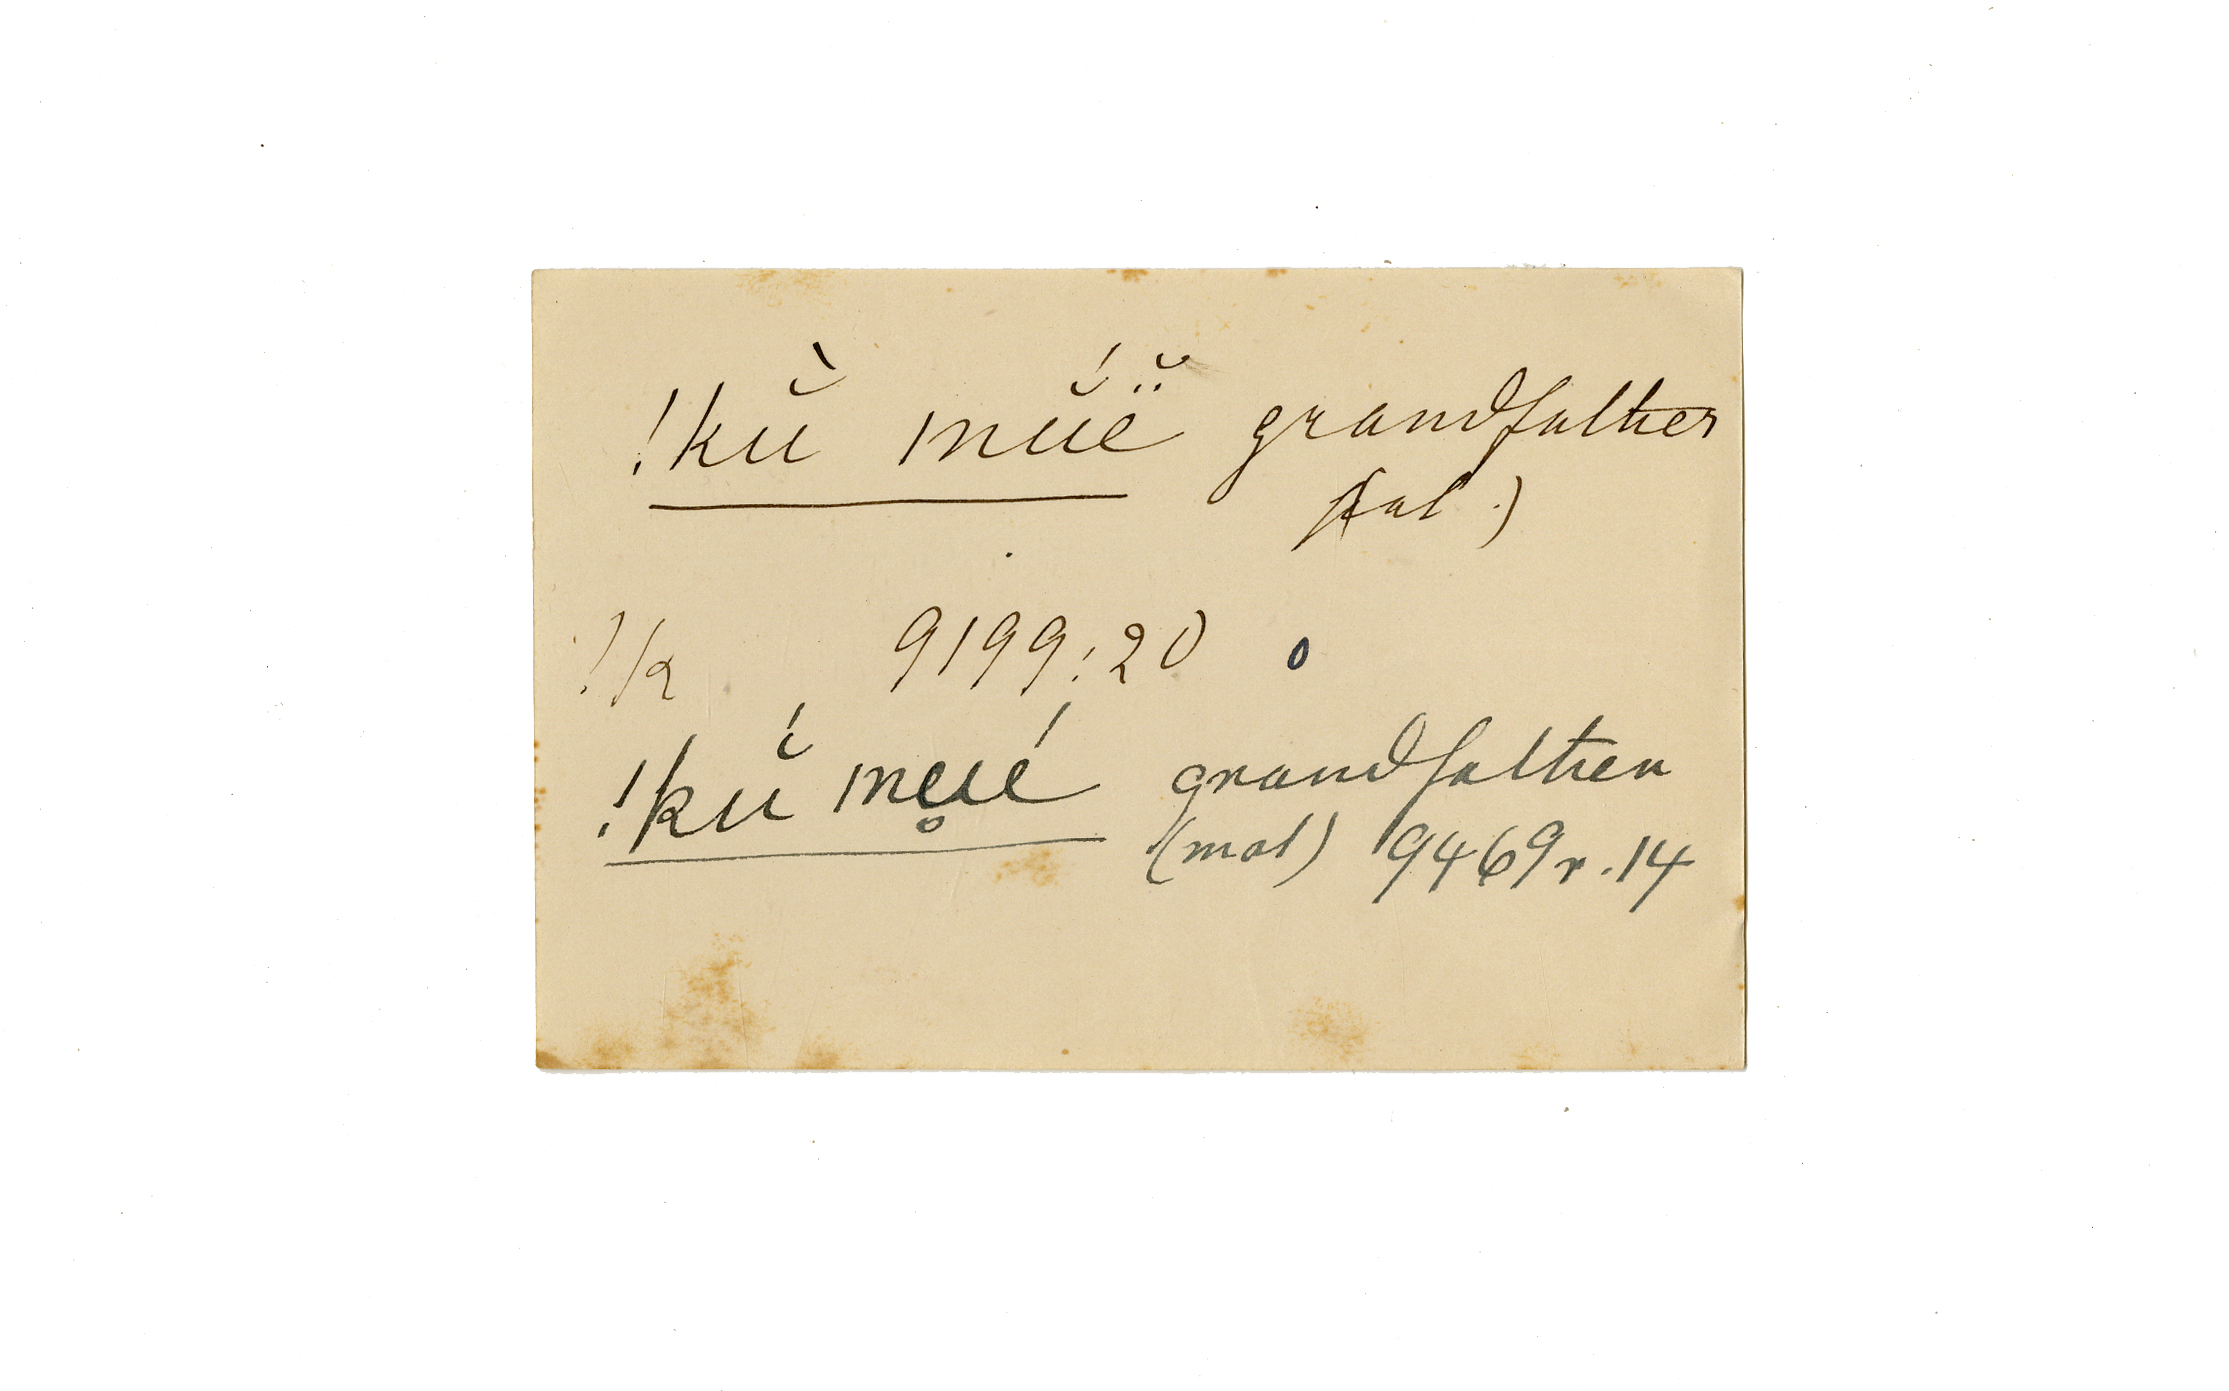 !kŭ̀ mŭ́ĕ̈ grandfather
(pat.)
!k 9199:20 o
!kŭ́ me̥ué grandfather
(mat) 9469r.14